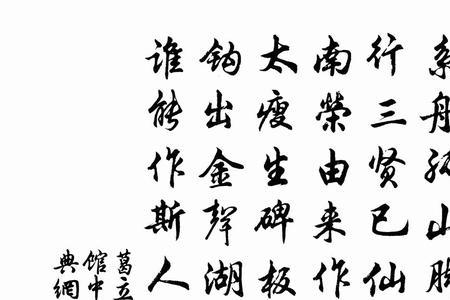 系舟孤山脚
行三贤已仙
南榮由来作
太瘦生碑板
钩出金聲湖
谁能作斯人
葛立
馆中
典網